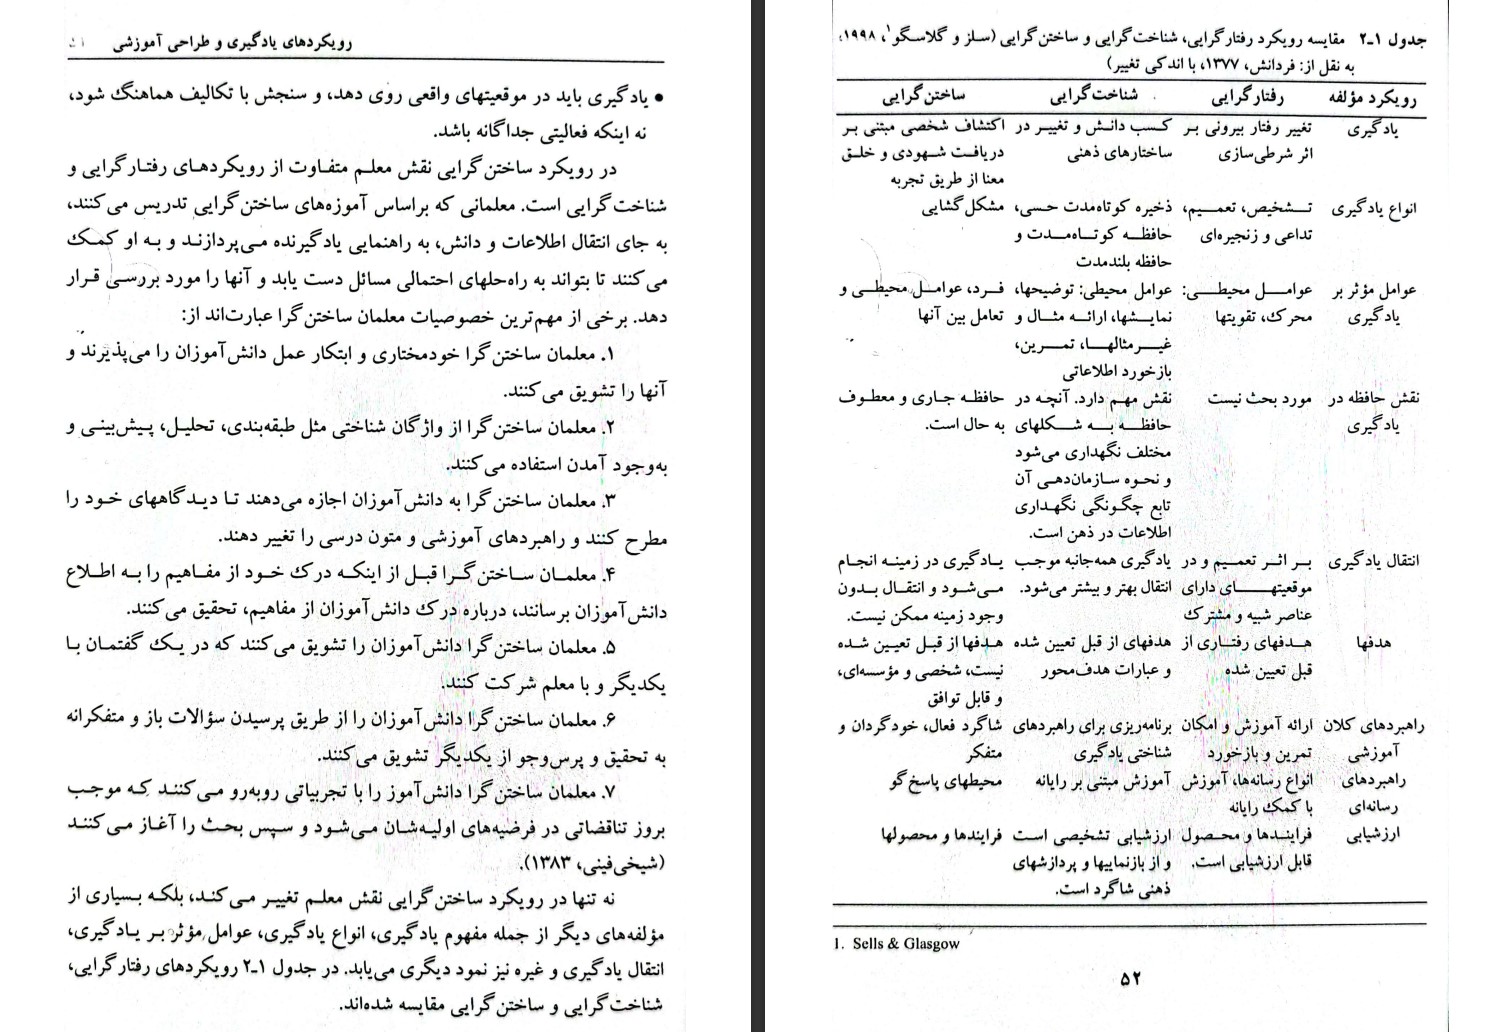 رویکردهای یادگیری و طراحی آموزشی
• یادگیری باید در موقعیتهای واقعی روی دهد، و سنجش با تکالیف هماهنگ شود،
نه اینکه فعالیتی جداگانه باشد.
در رویکرد ساختن‌گرایی نقش معلم متفاوت از رویکردهای رفتارگرایی و
شناخت‌گرایی است. معلمانی که براساس آموزه‌های ساختن‌گرایی تدریس می‌کنند،
به جای انتقال اطلاعات و دانش، به راهنمایی یادگیرنده می‌پردازند و به او کمک
می‌کنند تا بتواند به راه‌حلهای احتمالی مسائل دست یابد و آنها را مورد بررسی قرار
دهد. برخی از مهم‌ترین خصوصیات معلمان ساختن‌گرا عبارت‌اند از:
۱. معلمان ساختن‌گرا خودمختاری و ابتکار عمل دانش‌آموزان را می‌پذیرند و
آنها را تشویق می‌کنند.
۲. معلمان ساختن‌گرا از واژگان شناختی مثل طبقه‌بندی، تحلیل، پیش‌بینی و
به‌وجود آمدن استفاده می‌کنند.
۳. معلمان ساختن‌گرا به دانش‌آموزان اجازه می‌دهند تا دیدگاههای خود را
مطرح کنند و راهبردهای آموزشی و متون درسی را تغییر دهند.
۴. معلمان ساختن‌گرا قبل از اینکه درک خود از مفاهیم را به اطلاع
دانش‌آموزان برسانند، درباره درک دانش‌آموزان از مفاهیم، تحقیق می‌کنند.
۵. معلمان ساختن‌گرا دانش‌آموزان را تشویق می‌کنند که در یک گفتمان با
یکدیگر و با معلم شرکت کنند.
۶. معلمان ساختن‌گرا دانش‌آموزان را از طریق پرسیدن سؤالات باز و متفکرانه
به تحقیق و پرس‌وجو از یکدیگر تشویق می‌کنند.
۷. معلمان ساختن‌گرا دانش‌آموز را با تجربیاتی روبه‌رو می‌کنند که موجب
بروز تناقضاتی در فرضیه‌های اولیه‌شان می‌شود و سپس بحث را آغاز می‌کنند
(شیخی‌فینی، ۱۳۸۳).
نه تنها در رویکرد ساختن‌گرایی نقش معلم تغییر می‌کند، بلکه بسیاری از
مؤلفه‌های دیگر از جمله مفهوم یادگیری، انواع یادگیری، عوامل مؤثر بر یادگیری،
انتقال یادگیری و غیره نیز نمود دیگری می‌یابد. در جدول ۱ـ۲ رویکردهای رفتارگرایی،
شناخت‌گرایی و ساختن‌گرایی مقایسه شده‌اند.
جدول ۱ـ۲ مقایسه رویکرد رفتارگرایی، شناخت‌گرایی و ساختن‌گرایی (سلز و گلاسگو۱، ۱۹۹۸؛
به نقل از: فردانش، ۱۳۷۷، با اندکی تغییر)
رویکرد مؤلفه رفتارگرایی شناخت‌گرایی ساختن‌گرایی
یادگیری تغییر رفتار بیرونی بر کسب دانش و تغییر در اکتشاف شخصی مبتنی بر
اثر شرطی‌سازی ساختارهای ذهنی دریافت شهودی و خلق
معنا از طریق تجربه
انواع یادگیری تشخیص، تعمیم، ذخیره کوتاه‌مدت حسی، مشکل‌گشایی
تداعی و زنجیره‌ای حافظه کوتاه‌مدت و
حافظه بلندمدت
عوامل مؤثر بر عوامل محیطی: عوامل محیطی: توضیحها، فرد، عوامل محیطی و
یادگیری محرک، تقویتها نمایشها، ارائه مثال و تعامل بین آنها
غیرمثالها، تمرین،
بازخورد اطلاعاتی
نقش حافظه در مورد بحث نیست نقش مهم دارد. آنچه در حافظه جاری و معطوف
یادگیری حافظه به شکلهای به حال است.
مختلف نگهداری می‌شود
و نحوه سازمان‌دهی آن
تابع چگونگی نگهداری
اطلاعات در ذهن است.
انتقال یادگیری بر اثر تعمیم و در یادگیری همه‌جانبه موجب یادگیری در زمینه انجام
موقعیتهای دارای انتقال بهتر و بیشتر می‌شود. می‌شود و انتقال بدون
عناصر شبیه و مشترک وجود زمینه ممکن نیست.
هدفها هدفهای رفتاری از هدفهای از قبل تعیین شده هدفها از قبل تعیین شده
قبل تعیین شده و عبارات هدف‌محور نیست، شخصی و مؤسسه‌ای،
و قابل توافق
راهبردهای کلان ارائه آموزش و امکان برنامه‌ریزی برای راهبردهای شاگرد فعال، خودگردان و
آموزشی تمرین و بازخورد شناختی یادگیری متفکر
راهبردهای انواع رسانه‌ها، آموزش آموزش مبتنی بر رایانه محیطهای پاسخ‌گو
رسانه‌ای با کمک رایانه
ارزشیابی فرایندها و محصول ارزشیابی تشخیصی است فرایندها و محصولها
قابل ارزشیابی است. و از بازنماییها و پردازشهای
ذهنی شاگرد است.
1. Sells & Glasgow
۵۲